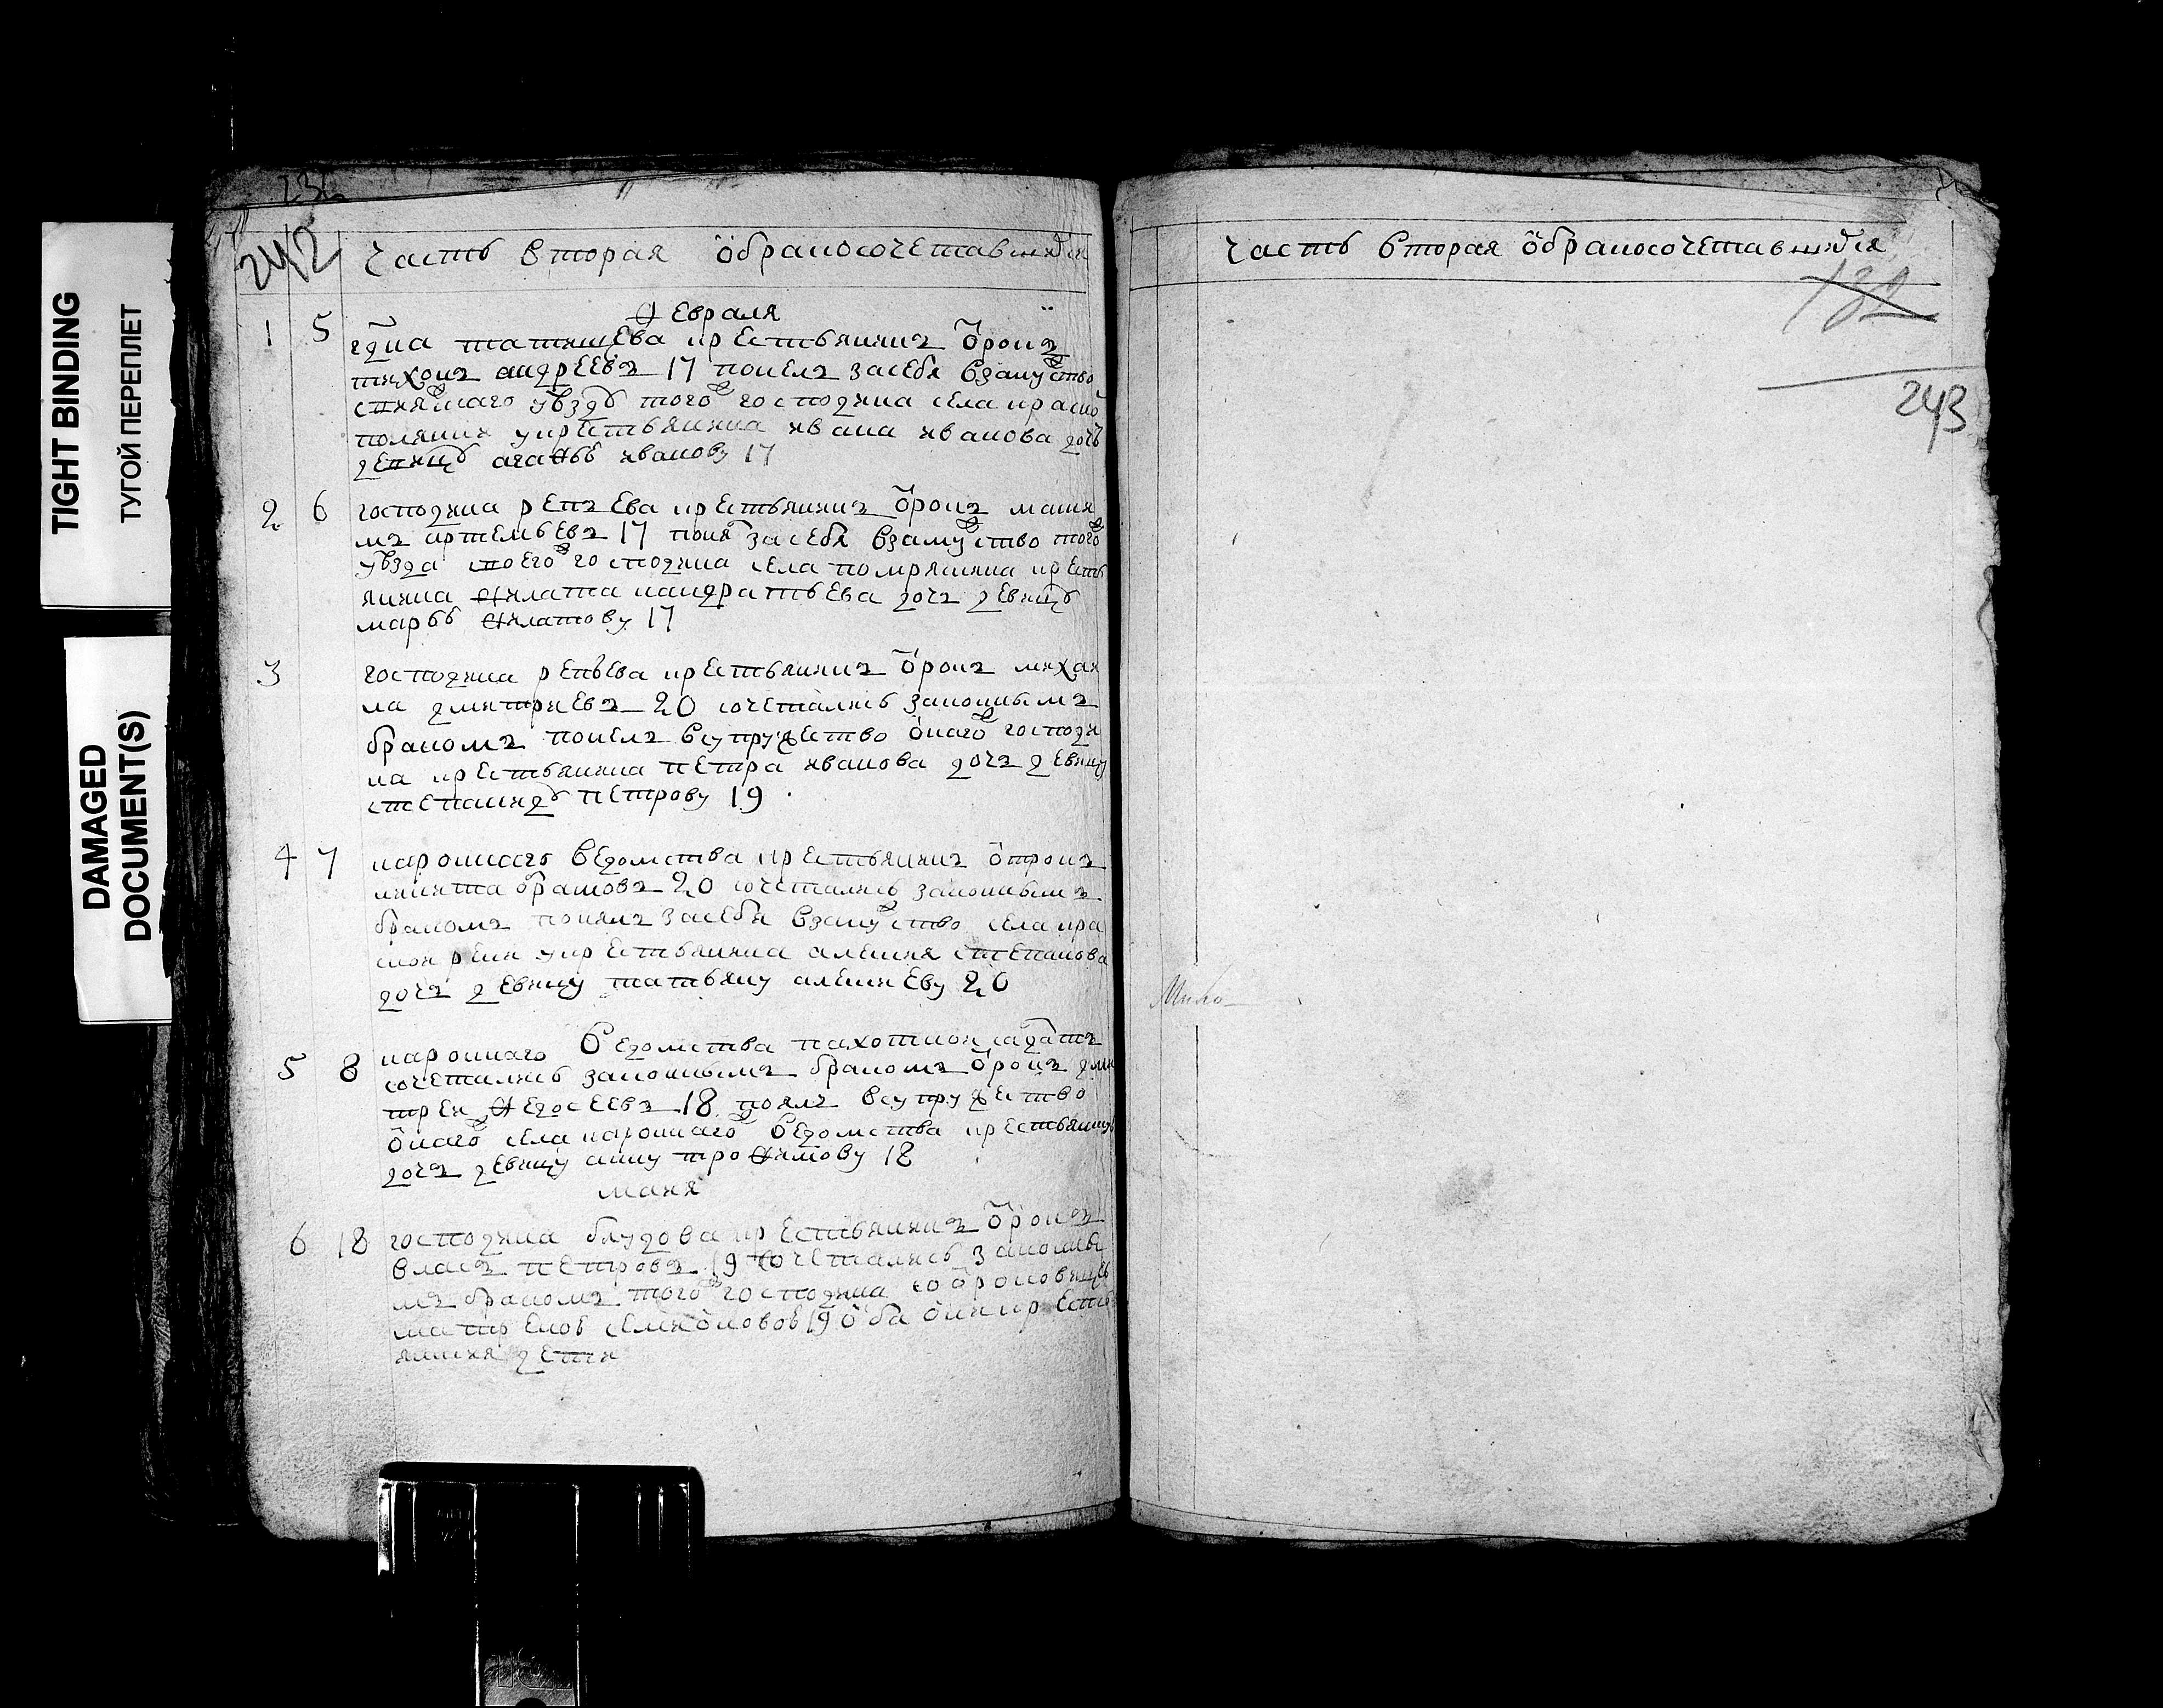 TIGHT BINDING
ТУГОЙ ПЕРЕПЛЕТ
DAMAGED
DOCUMENT(S)
242
часть вторая о бракосочетавшихся
февраля
1 5 гдна татищева крестьянинъ отрокъ
тихонъ андреевъ 17 понелъ засебя взамуство
уѣзду того господина села красно
поляния укрестьянина ивана иванова дочь
девицу агафью иванову 17
2 6 господина репьева крестьянинъ отрокъ макси
мъ артемьевъ 17 поня засебя взамуство того
уѣзда господина села кресть
янина филата кандратьева дочъ девицу
марью филатову 17
3 господина репьева крестьянинъ отрокъ михаи
ла дмитриевъ 20 сочетались законнымъ
бракомъ понелъ всупружество онаго господи
на крестьянина петра иванова дочъ девицу
степаниду петрову 19
4 7 ведомства крестьянинъ отрокъ
никита 20 сочетались законнымъ
бракомъ понялъ засебя взамуство села кра
укрестьянина алексия степанова
дочъ девицу татьяну алексиеву 20
5 8 ведомства пахотной салдатъ
сочетались законнымъ бракомъ отрокъ дми
трей федосеевъ 18 поялъ всупружество
онаго села ведомства
дочъ девицу анну трофимову 18
маия
6 18 господина блудова крестьянинъ отрокъ
власъ петровъ 19 сочетались законны
мъ бракомъ того господина
19 оба они кресть
янския дети
часть вторая о бракосочетавшихся
132
243